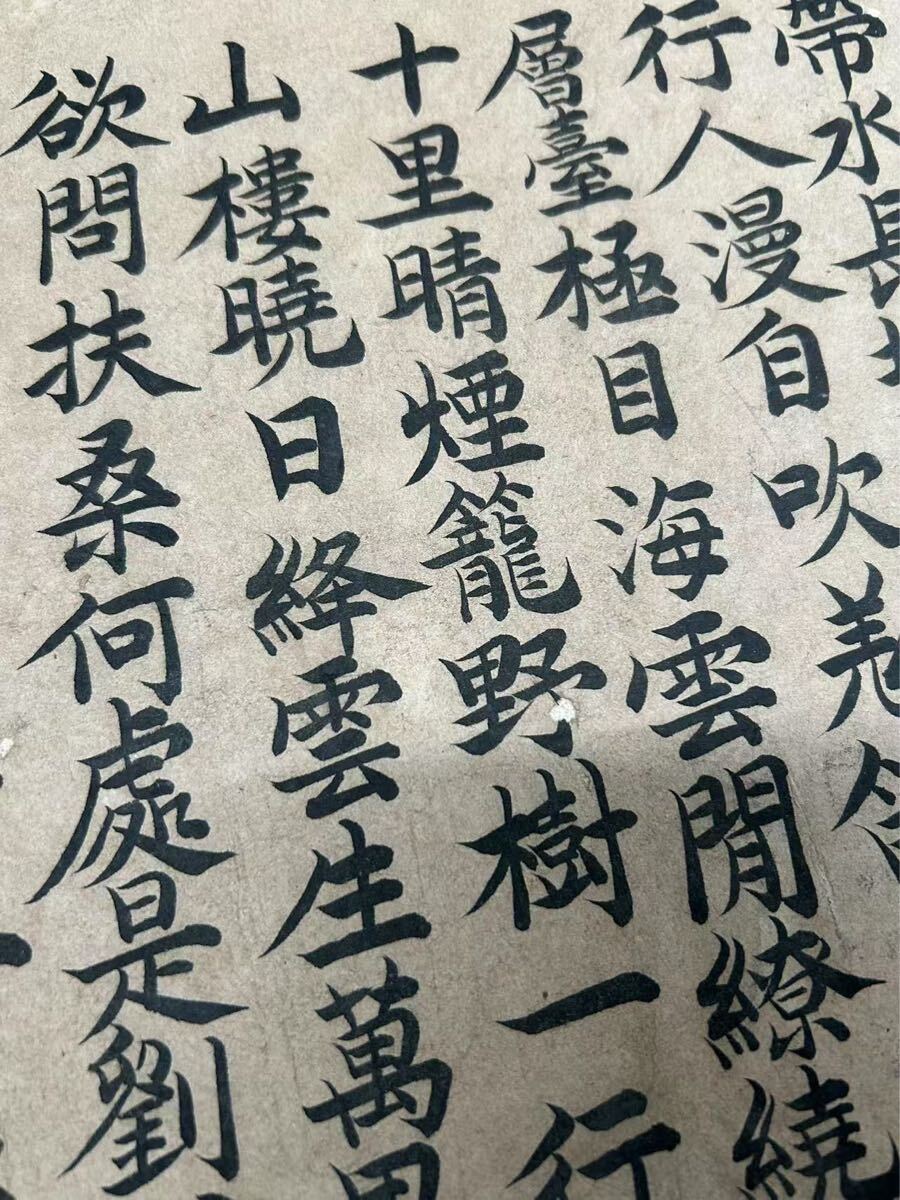 帶水長
行人漫自吹羌
層臺極目海雲閒繚繞
十里晴煙籠野樹一行
山樓曉日絳雲生萬里
欲問扶桑何處是劉